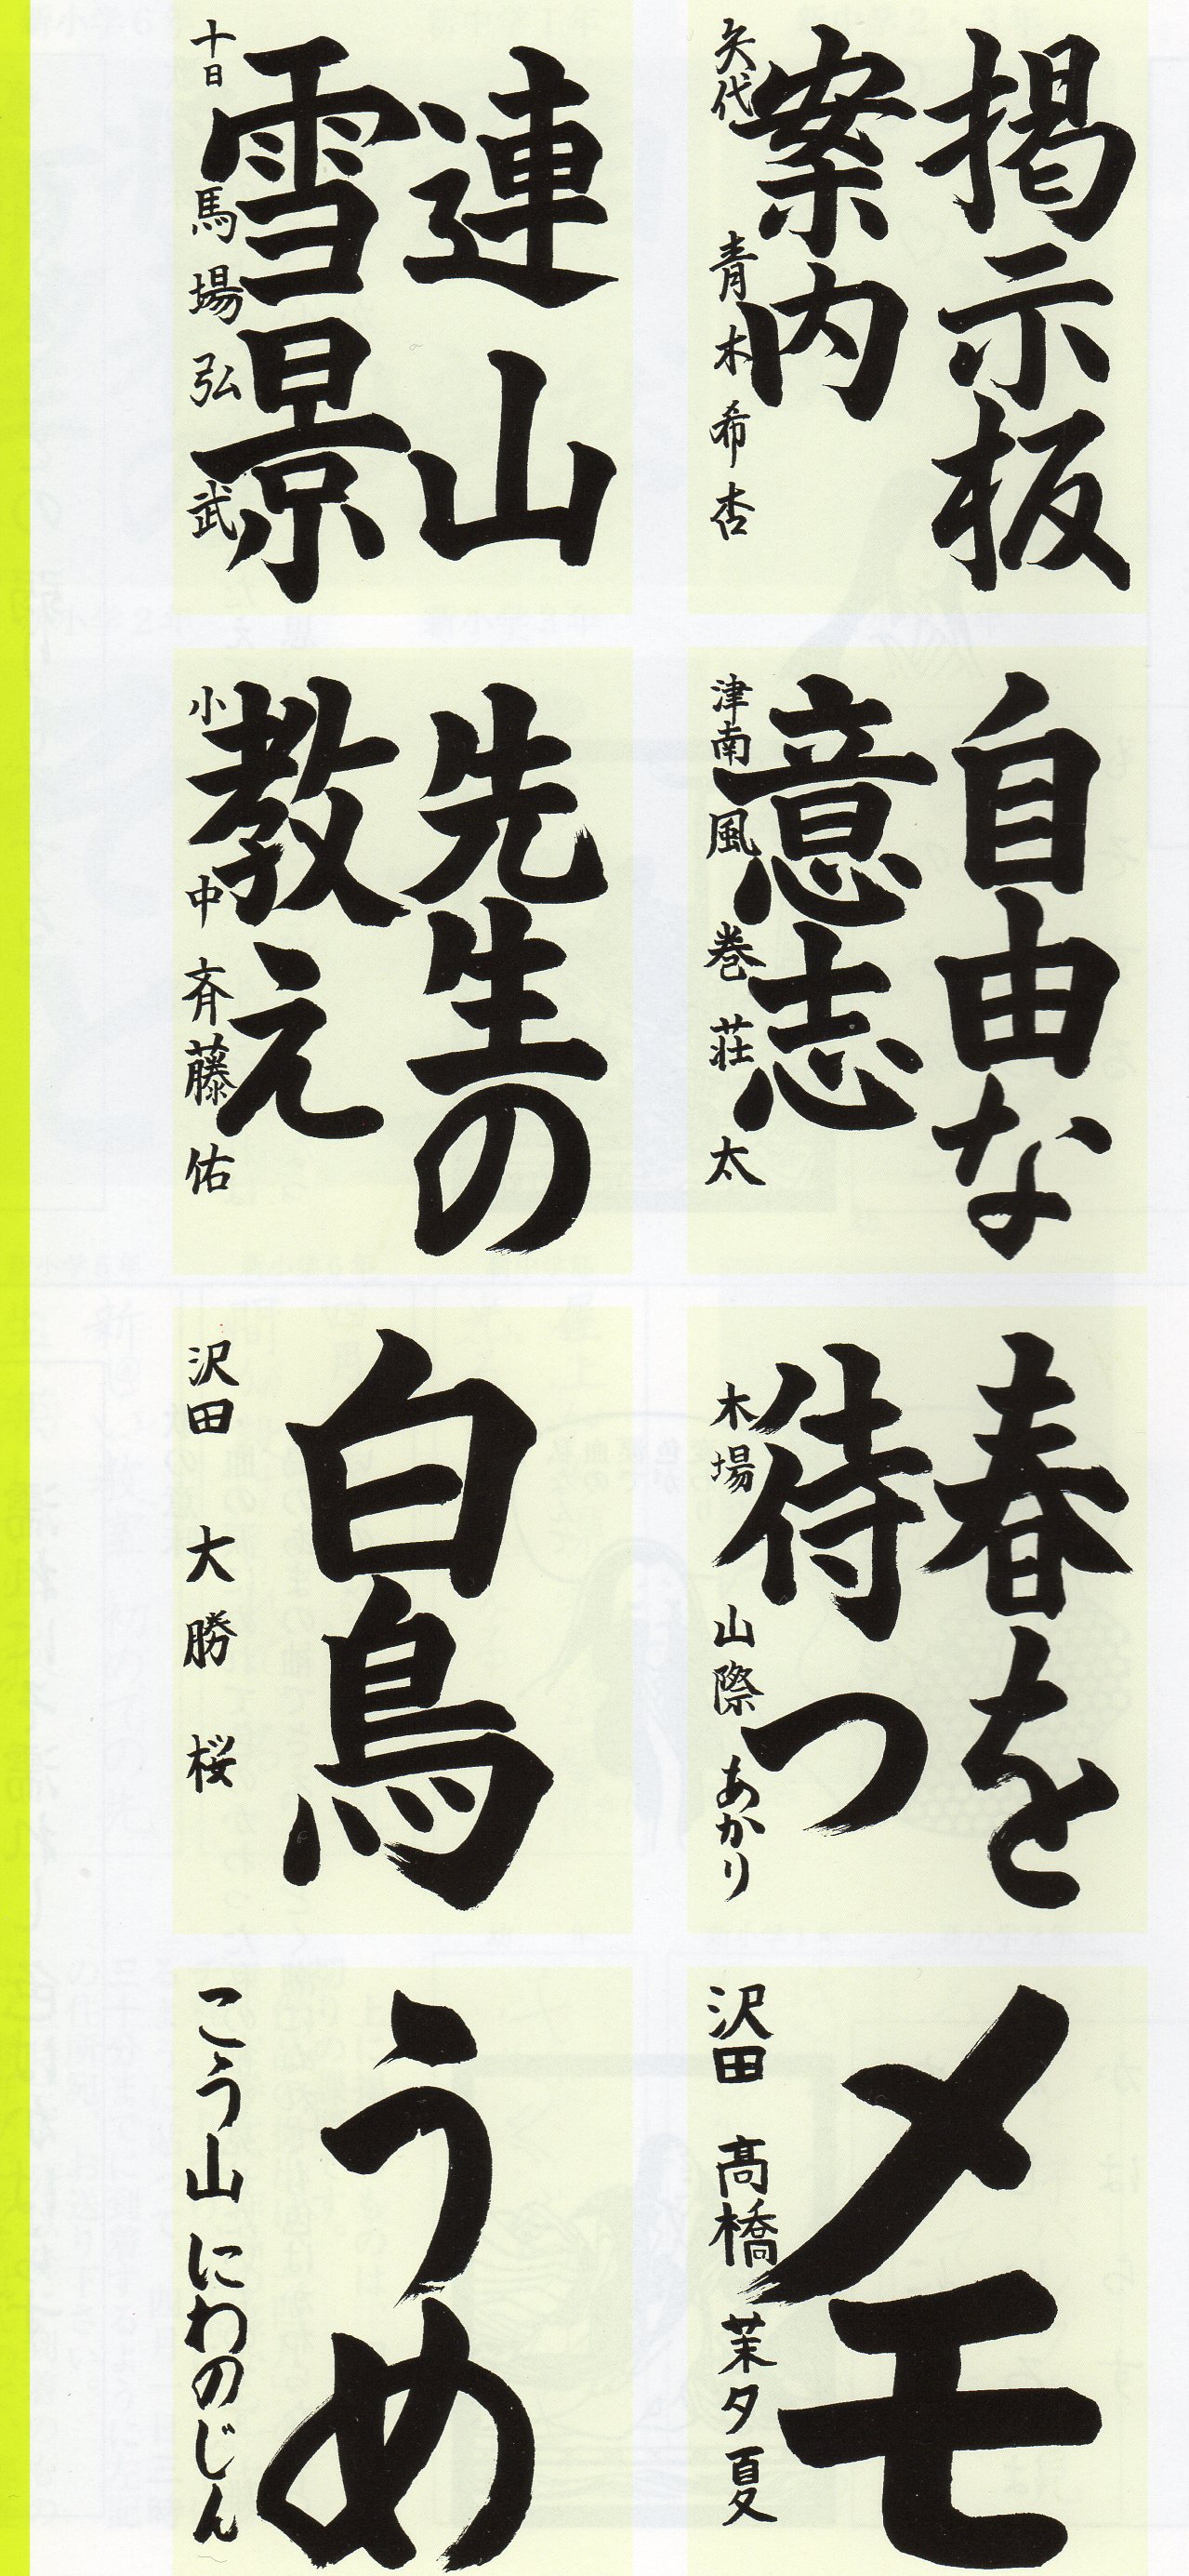 掲示板
案内
矢代 青木希杏
連山
雪景
十日 馬場弘武
自由な
意志
津南 風巻荘太
先生の
教え
小中 斉藤佑
春を
待つ
木場 山際あかり
白鳥
沢田 大勝桜
メモ
沢田 高橋茉夕夏
うめ
こう山 にわのじん